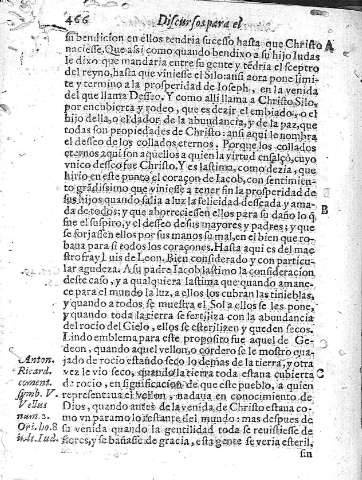 466 Discursos para el
su bendicion en ellos tendria sucesso hasta que Christo A
naciesse. Que assi como quando bendixo a su hijo Iudas
le dixo que mandaria entre su gente y tẽdria el sceptro
del reyno, hasta que viniesse el Silo: ansi aora pone limi-
te y termino a la prosperidad de Ioseph, en la venida
del que llama Desseo. Y como alli llama a Christo, Silo,
por encubierta y rodeo, que es dezir el embiado, o el
hijo della, o el dador de la abundancia, y de la paz, que
todas son propiedades de Christo: ansi aqui le nombra
el desseo de los collados eternos. Porque los collados
eternos aqui son aq̃uellos a quien la virtud ensalço, cuyo
vnico desseo fue Christo. Y es lastima, como dezia, que
hirio en este punto el coraçon de Iacob, con sentimien-
to grãdissimo que viniesse a tener fin la prosperidad de
sus hijos quando salia a luz la felicidad desseada y ama-
da de todos; y que aborreciessen ellos para su daño lo q̃ B
fue el suspiro, y el desseo de sus mayores y padres; y que
se forjassen ellos por sus manos su mal, en el bien que ro-
baua para si todos los coraçones. Hasta aqui es del mae-
stro fray Luis de Leon. Bien considerado y con particu-
lar agudeza. A su padre Iacob lastimo la consideracion
deste caso, y a qualquiera lastima que quando amane-
ce para el mundo la luz, a ellos los cubran las tinieblas,
y quando a todos se muestra el Sol a ellos se les pone,
y quando toda la tierra se fertiliza con la abundancia
del rocio del Cielo, ellos se esterilizen y queden secos.
Lindo emblema para este proposito fue aquel de Ge-
deon, quando aquel vellon, o cordero se le mostro qua-
jado de rocio estando seco lo demas de la tierra, y otra
vez le vio seco, quando la tierra toda estaua cubierta C
de rocio, en significacion de que este pueblo, a quien
representaua el vellon, nadaua en conocimiento de
Dios, quando antes de la venida de Christo estaua co-
mo vn paramo lo restante del mundo: mas despues de
su venida quando la gentilidad toda se reuistiesse de
flores, y se bañasse de gracia, esta gente se veria esteril,
sin
Anton.
Ricard.
coment.
symb. V.
Vellus
num. 2.
Ori. ho. 8
in li. Iud.